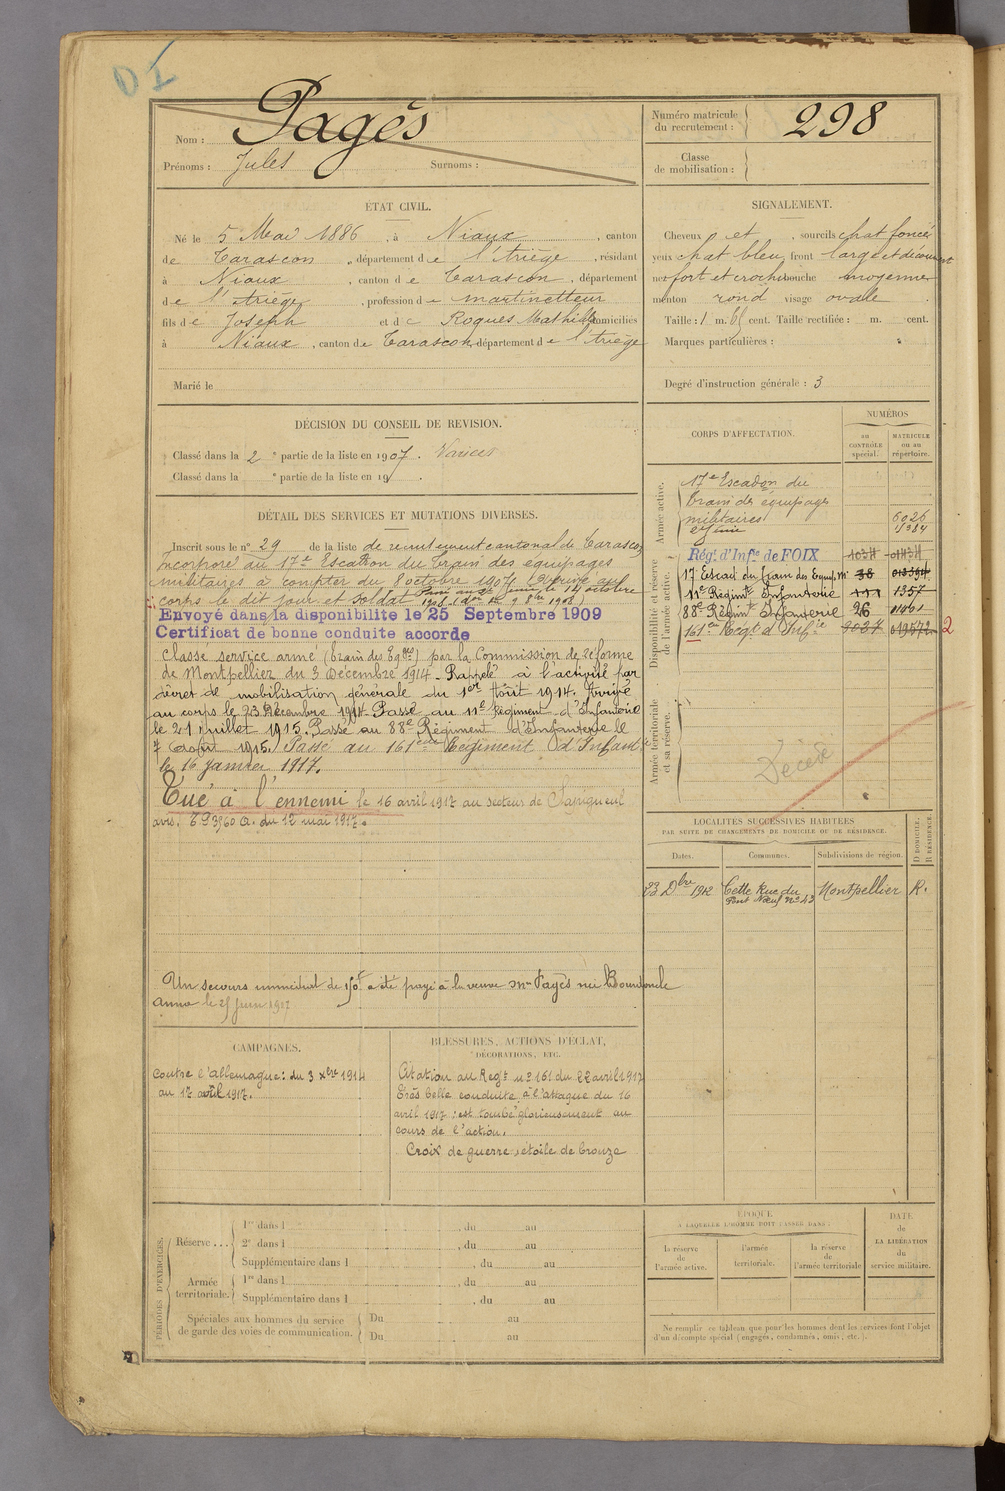 Nom : Pagès
Prénoms : Jules Surnoms :
Numéro matricule du recrutement : 298
Classe de mobilisation :
ÉTAT CIVIL.
Né le 5 Mai 1886, à Niaux, canton
de Tarascon, département de l'Ariège, résidant
à Niaux, canton de Tarascon, département
de l'Ariège, profession de martinetteur
fils de Joseph et de Roques Mathilde domiciliés
à Niaux, canton de Tarascon, département de l'Ariège
Marié le
SIGNALEMENT.
Cheveux et, sourcils chat foncé
yeux chat bleu, front large et découvert
nez fort et croch bouche moyenne
menton rond visage ovale
Taille : 1 m. 65 cent. Taille rectifiée : m. cent.
Marques particulières :
Degré d'instruction générale : 3
DÉCISION DU CONSEIL DE REVISION.
Classé dans la 2e partie de la liste en 1907. Varices
Classé dans la e partie de la liste en 19 .
DÉTAIL DES SERVICES ET MUTATIONS DIVERSES.
Inscrit sous le n° 29 de la liste de recrutement cantonal de Tarascon
Incorporé au 17e Escadron du train des équipages
militaires à compter du 8 octobre 1907. Arrivé au
corps le dit jour et soldat
le 14 octobre
1908
Envoyé dans la disponibilité le 25 Septembre 1909
Certificat de bonne conduite accordé
Classé service armé (train des Eq.) par la Commission de réforme
de Montpellier du 3 Décembre 1914 - Rappelé à l'activité par
décret de mobilisation générale du 1er Août 1914. Arrivé
au corps le 23 Décembre 1914 Passé au 11e Régiment d'Infanterie
le 21 juillet 1915. Passé au 88e Régiment d'Infanterie le
7 Août 1915. Passé au 161eme Régiment d'Infant
le 16 janvier 1917.
Tué à l'ennemi le 16 avril 1917 au secteur de Sapigneul
avis. du 12 mai 1917.
Un secours de 150f a été payé à la veuve Mme Pagès née
Anna le 25 juin 1917
CORPS D'AFFECTATION.
NUMÉROS
au CONTRÔLE spécial.
MATRICULE ou au répertoire.
Armée active.
17e Escadron du
train des équipages
militaires 6026
Génie
Disponibilité et réserve de l'armée active.
Régt d'Infie de FOIX
17 Escad du train des Equip. M 38
11e Régimt Infanterie 111 1357
88e Régimt Infanterie 26
161e Régt d'Infie 2
Armée territoriale et sa réserve.
Décédé
LOCALITÉS SUCCESSIVES HABITÉES
PAR SUITE DE CHANGEMENTS DE DOMICILE OU DE RÉSIDENCE.
Dates. Communes. Subdivisions de région. D DOMICILE. R RÉSIDENCE.
23 Dbre 1912 Cette Rue du Pont Neuf n° 43 Montpellier R.
CAMPAGNES.
Contre l'Allemagne : du 3 Xbre 1914
au 17 avril 1917.
BLESSURES, ACTIONS D'ÉCLAT,
DÉCORATIONS, ETC.
Citation au Régt n° 161 du 22 avril 1917
Très belle conduite à l'attaque du 16
avril 1917 : est tombé glorieusement au
cours de l'action.
Croix de guerre, étoile de bronze
PÉRIODES D'EXERCICES.
Réserve ...
1re dans l , du au
2e dans l , du au
Supplémentaire dans l , du au
Armée territoriale.
1re dans l , du au
Supplémentaire dans l , du au
Spéciales aux hommes du service de garde des voies de communication.
Du au
Du au
ÉPOQUE
À LAQUELLE L'HOMME DOIT PASSER DANS :
la réserve de l'armée active.
l'armée territoriale.
la réserve de l'armée territoriale
DATE de LA LIBÉRATION du service militaire.
Ne remplir ce tableau que pour les hommes dont les services font l'objet
d'un décompte spécial (engagés, condamnés, omis, etc.).